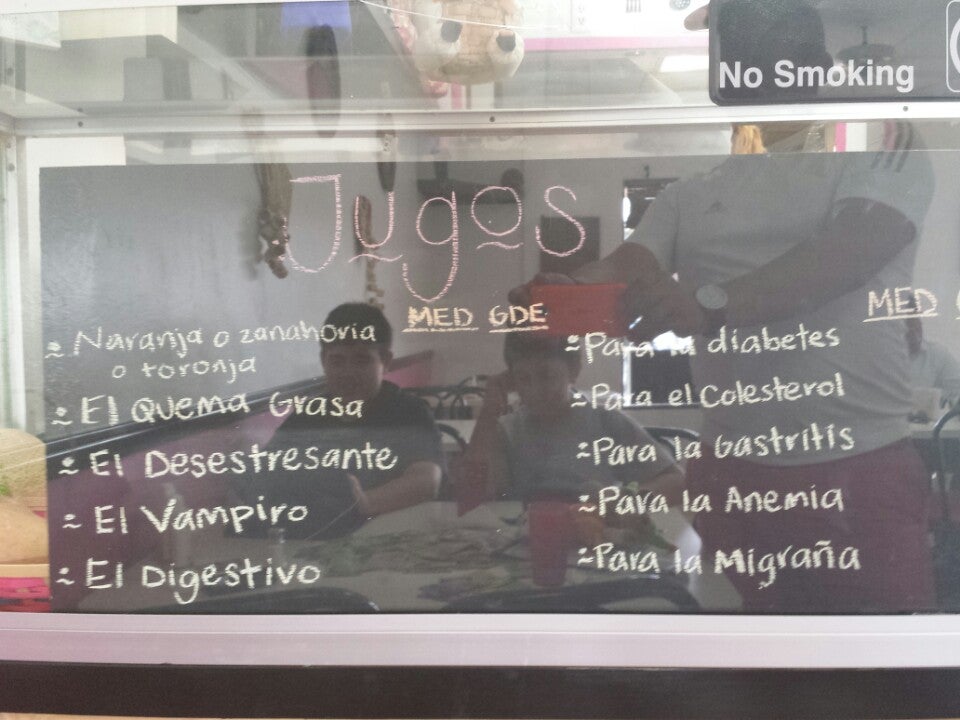 No Smoking
Jugos
MED GDE
Naranja o zanahoria
o toronja
El Quema Grasa
El Desestresante
El Vampiro
El Digestivo
MED
Para la diabetes
Para el Colesterol
Para la Gastritis
Para la Anemia
Para la Migraña